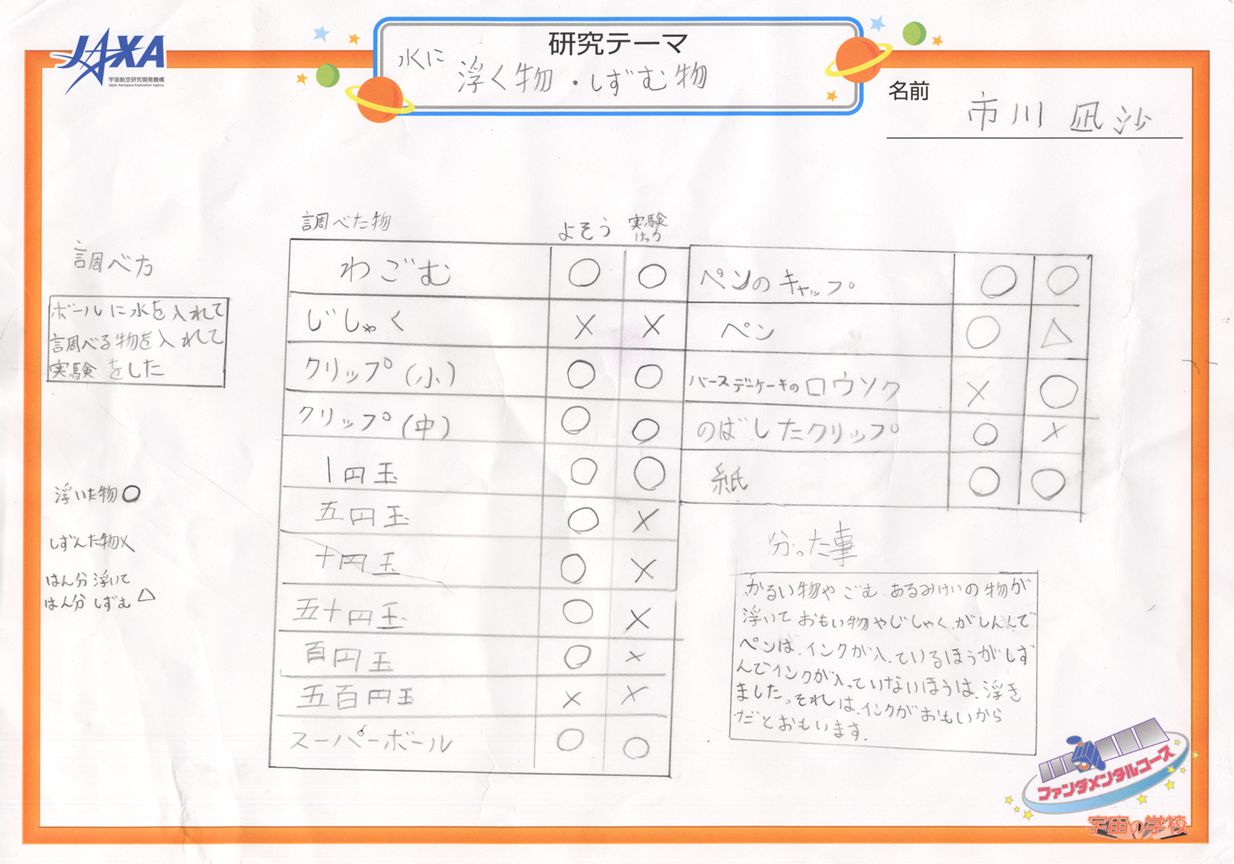 JAXA
宇宙航空研究開発機構
Japan Aerospace Exploration Agency
研究テーマ
水に 浮く物・しずむ物
名前
市川 凪沙
調べ方
ボールに水を入れて
調べる物を入れて
実験をした
浮いた物○
しずんた物×
はん分浮いて
はん分しずむ△
調べた物 よそう 実験けっか
わごむ ○ ○
じしゃく × ×
クリップ(小) ○ ○
クリップ(中) ○ ○
1円玉 ○ ○
五円玉 ○ ×
十円玉 ○ ×
五十円玉 ○ ×
百円玉 ○ ×
五百円玉 × ×
スーパーボール ○ ○
ペンのキャップ ○ ○
ペン ○ △
バースデーケーキのロウソク × ○
のばしたクリップ ○ ×
紙 ○ ○
分った事
かるい物やごむ、あるみけいの物が
浮いておもい物やじしゃくがしんんで
ペンは、インクが入っているほうがしず
んでインクが入っていないほうは、浮き
ました。それは、インクがおもいから
だとおもいます。
ファンダメンタルコース
宇宙の学校